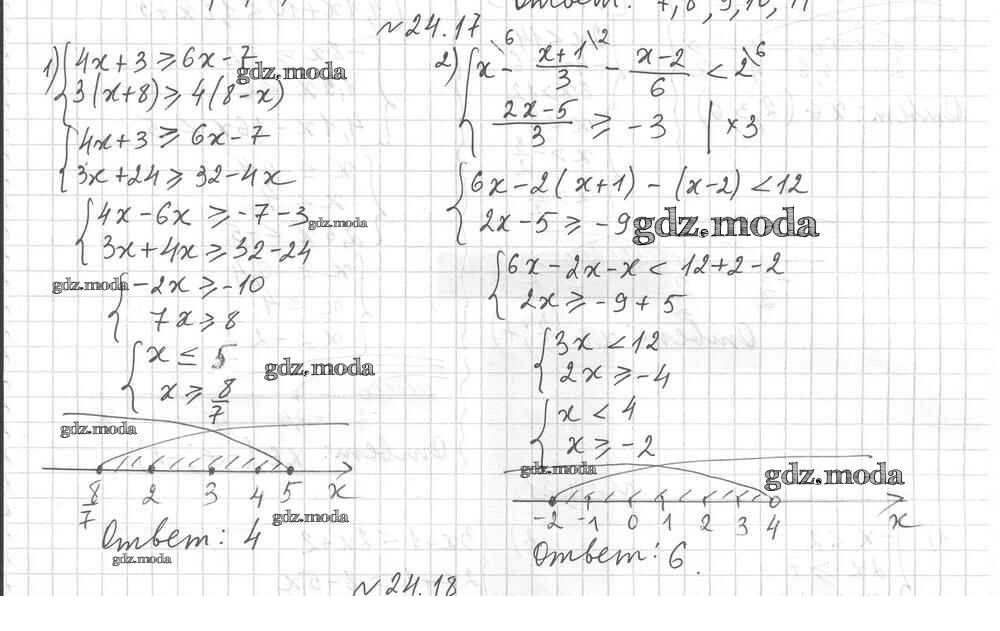 Ответ: 7, 8, 9, 10, 11
№24.17
1) { 4x+3 ≥ 6x-7
3(x+8) ≥ 4(8-x)
gdz.moda
{ 4x+3 ≥ 6x-7
3x+24 ≥ 32-4x
{ 4x-6x ≥ -7-3
3x+4x ≥ 32-24
gdz.moda
{ -2x ≥ -10
7x ≥ 8
gdz.moda
{ x ≤ 5
x ≥ 8/7
gdz.moda
gdz.moda
8/7 2 3 4 5 x
gdz.moda
Ответ: 4
gdz.moda
2) { x\6 - (x+1)/3\2 - (x-2)/6 < 2\6
(2x-5)/3 ≥ -3 | ×3
{ 6x-2(x+1)-(x-2) < 12
2x-5 ≥ -9
gdz.moda
{ 6x-2x-x < 12+2-2
2x ≥ -9+5
{ 3x < 12
2x ≥ -4
{ x < 4
x ≥ -2
gdz.moda
gdz.moda
-2 -1 0 1 2 3 4 x
Ответ: 6
№24.18